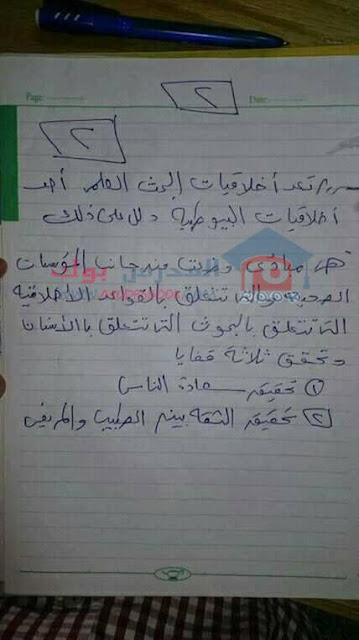 Page: Date:
٢
٢
س/ تعد أخلاقيات البحث العلمى أحد
أخلاقيات البيوطيه دلل على ذلك
هى مبادئ وضعت من جانب المؤسسات
الصحيه والتى تتعلق بالقواعد الأخلاقيه
التى تتعلق بالبحوث التى تتعلق بالأنسان
وتحقق ثلاثة قضايا
① تحقيق سعادة الناس
② تحقيق الثقه بين الطبيب والمريض
المدرس بوك